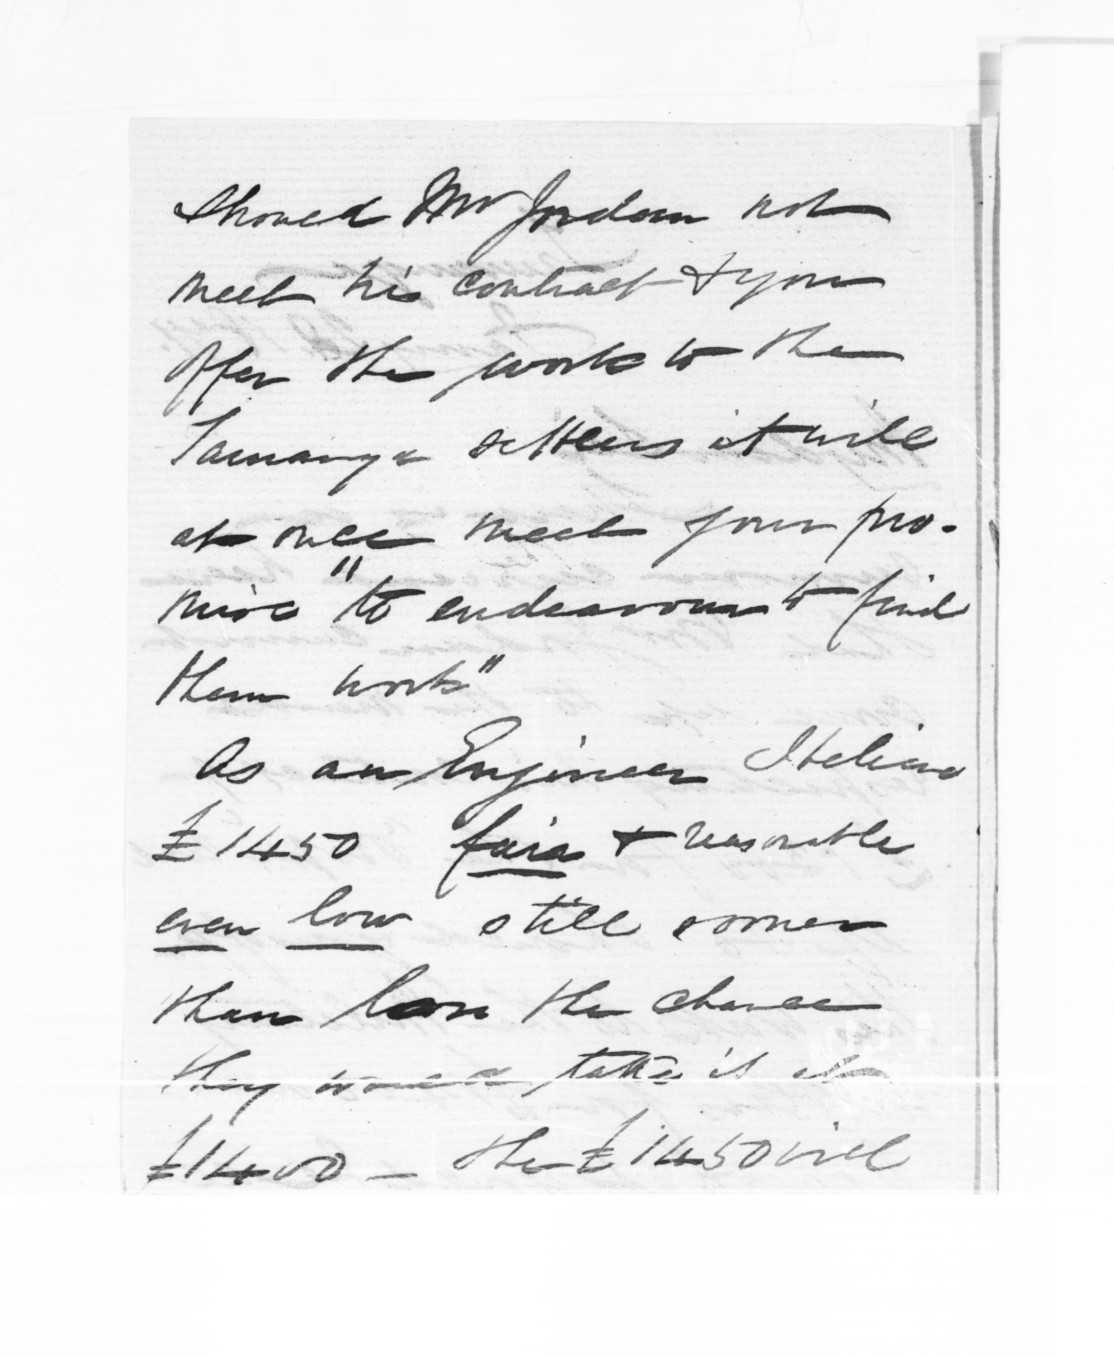 Should Mr Jordan not
meet his contract & you
offer the work to the
Tauranga settlers it will
at once meet your pro-
mise "to endeavour to find
them work"
As an Engineer I believe
£1450 fair & reasonable
even low still sooner
than lose the chance
they would take it at
£1400 — the £1450 will